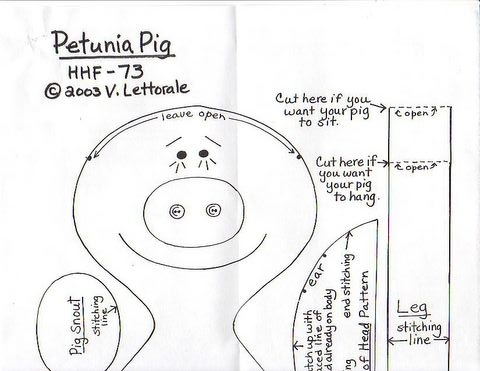 Petunia Pig
HHF-73
© 2003 V. Lettorale
leave open
Cut here if you
want your pig
to sit.
open
Cut here if
you want
your pig
to hang.
open
Pig Snout
stitching
line
ear
end stitching
of Head Pattern
tch up with
ced line of
d already on body
Leg
stitching
line